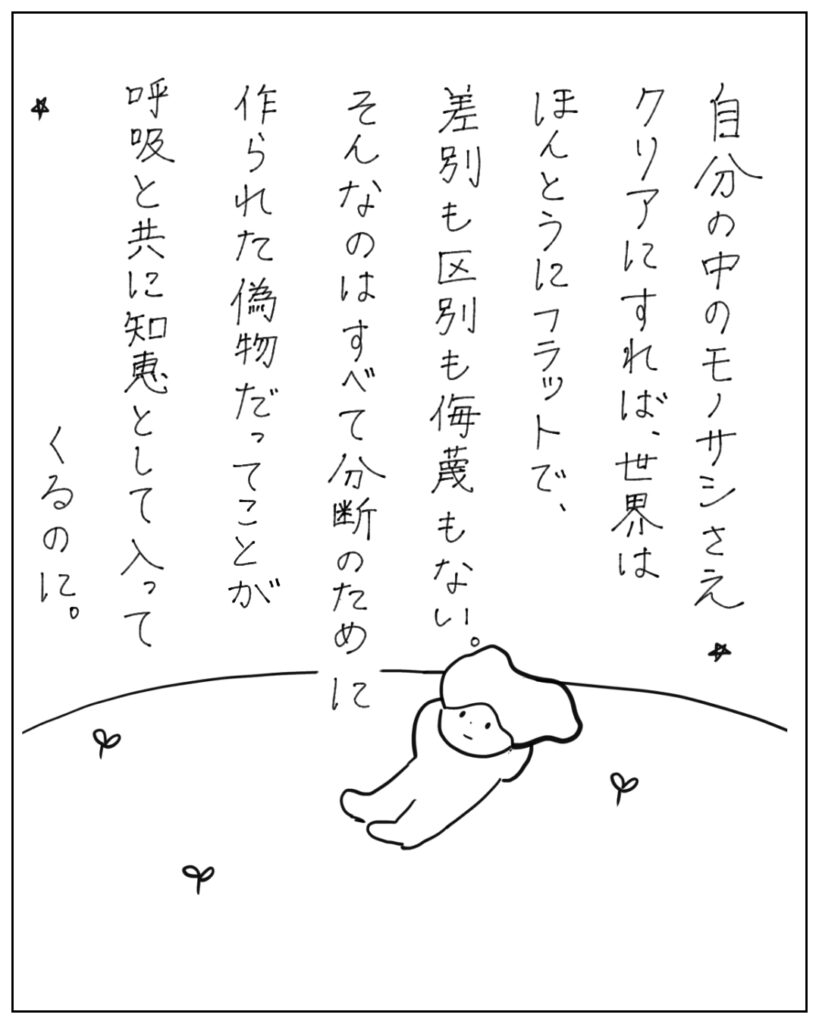 自分の中のモノサシさえ
クリアにすれば、世界は
ほんとうにフラットで、
差別も区別も侮蔑もない。
そんなのはすべて分断のために
作られた偽物だってことが
呼吸と共に知恵として入って
くるのに。